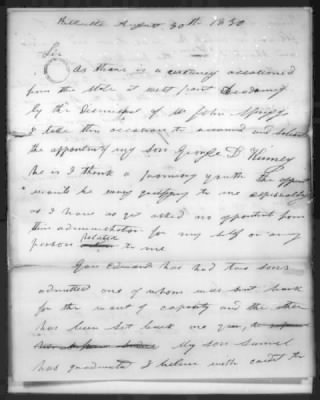 Bellville August 30th 1830
Sir
As there is a vacancy occationed
from the State at west point Academy
by the Dismissal of John Spriggs
I take this occation to
the appointing my son George D Kinney
he is I think a promising youth the appoint
would be very gratifying to me especially
as I have as yet asked no appointment from
this administration for my self or any
person related to me
Gov Edwards has had two sons
admitted one of whom was sent back
for the want of capacity and the other
has been set back one year,
My son Samuel
has graduated I believe with credit to